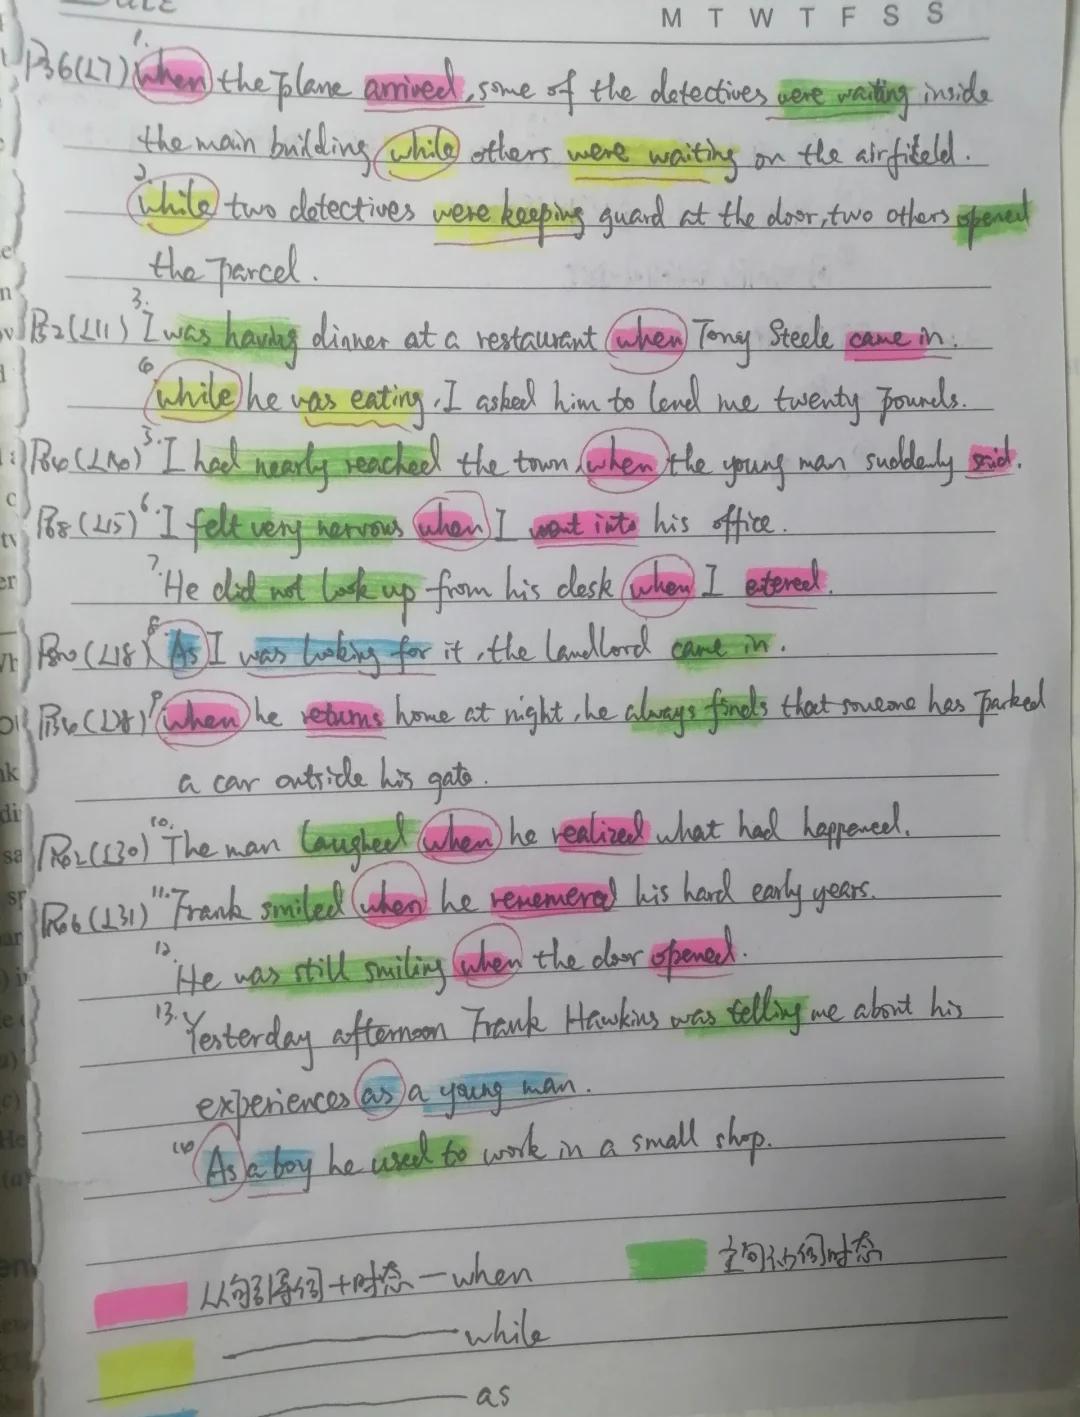 M T W T F S S
P36(L7) 1. When the plane arrived, some of the detectives were waiting inside
the main building while others were waiting on the airfiteld.
2. While two detectives were keeping guard at the door, two others opened
the parcel.
P52(L11) 3. I was having dinner at a restaurant when Tony Steele came in.
while he was eating, I asked him to lend me twenty pounds.
5. I had nearly reached the town, when the young man suddenly said.
P68(L15) 6. I felt very nervous when I went into his office.
7. He did not look up from his desk when I etered.
P80(L18) 8. As I was looking for it, the landlord came in.
9. when he returns home at night, he always finds that someone has parked
a car outside his gate.
10. The man laughed when he realized what had happened.
(L31) 11. Frank smiled when he rememered his hard early years.
12. He was still smiling when the door opened.
13. Yesterday afternoon Frank Hawkins was telling me about his
experiences as a young man.
As a boy he used to work in a small shop.
主句动词时态
从句引导词+时态—when
—while
—as